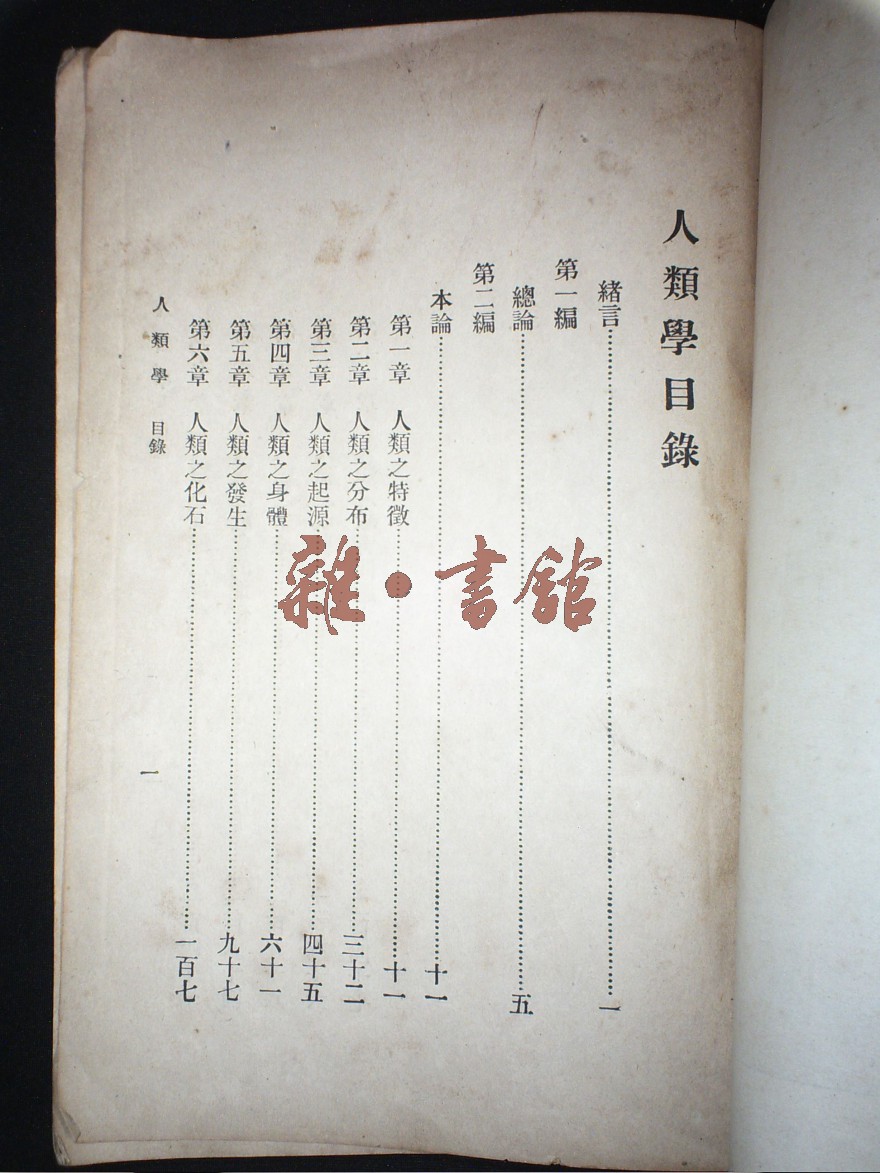 人類學目錄
緒言……一
第一編
總論……五
第二編
本論……十一
第一章 人類之特徵……十一
第二章 人類之分布……三十二
第三章 人類之起源……四十五
第四章 人類之身體……六十一
第五章 人類之發生……九十七
第六章 人類之化石……一百七
人類學 目錄 一
雜·書館